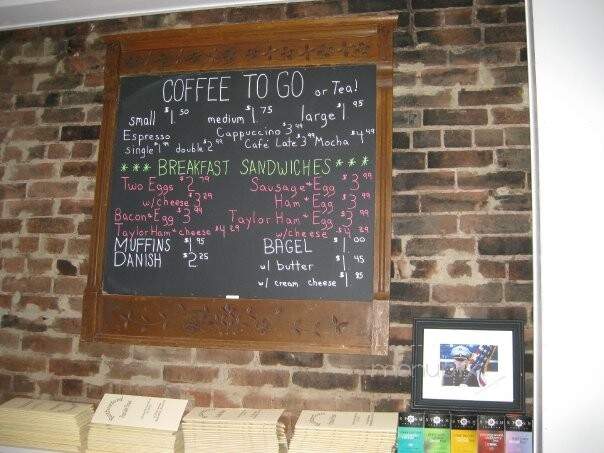 COFFEE TO GO or Tea!
small $1 50 medium $1 75 large $1 95
Espresso Cappuccino $3 99
single $1 99 double $2 99 Café Late $3 99 Mocha $4 49
*** BREAKFAST SANDWICHES ***
Two Eggs $2 79 Sausage+Egg $3 99
w/cheese $3 29 Ham+Egg $3 99
Bacon+Egg $3 99 Taylor Ham+Egg $3 99
Taylor Ham+cheese $4 29 w/cheese $4 29
MUFFINS $1 95 BAGEL $1 00
DANISH $2 25 w/ butter $1 45
w/ cream cheese $1 85